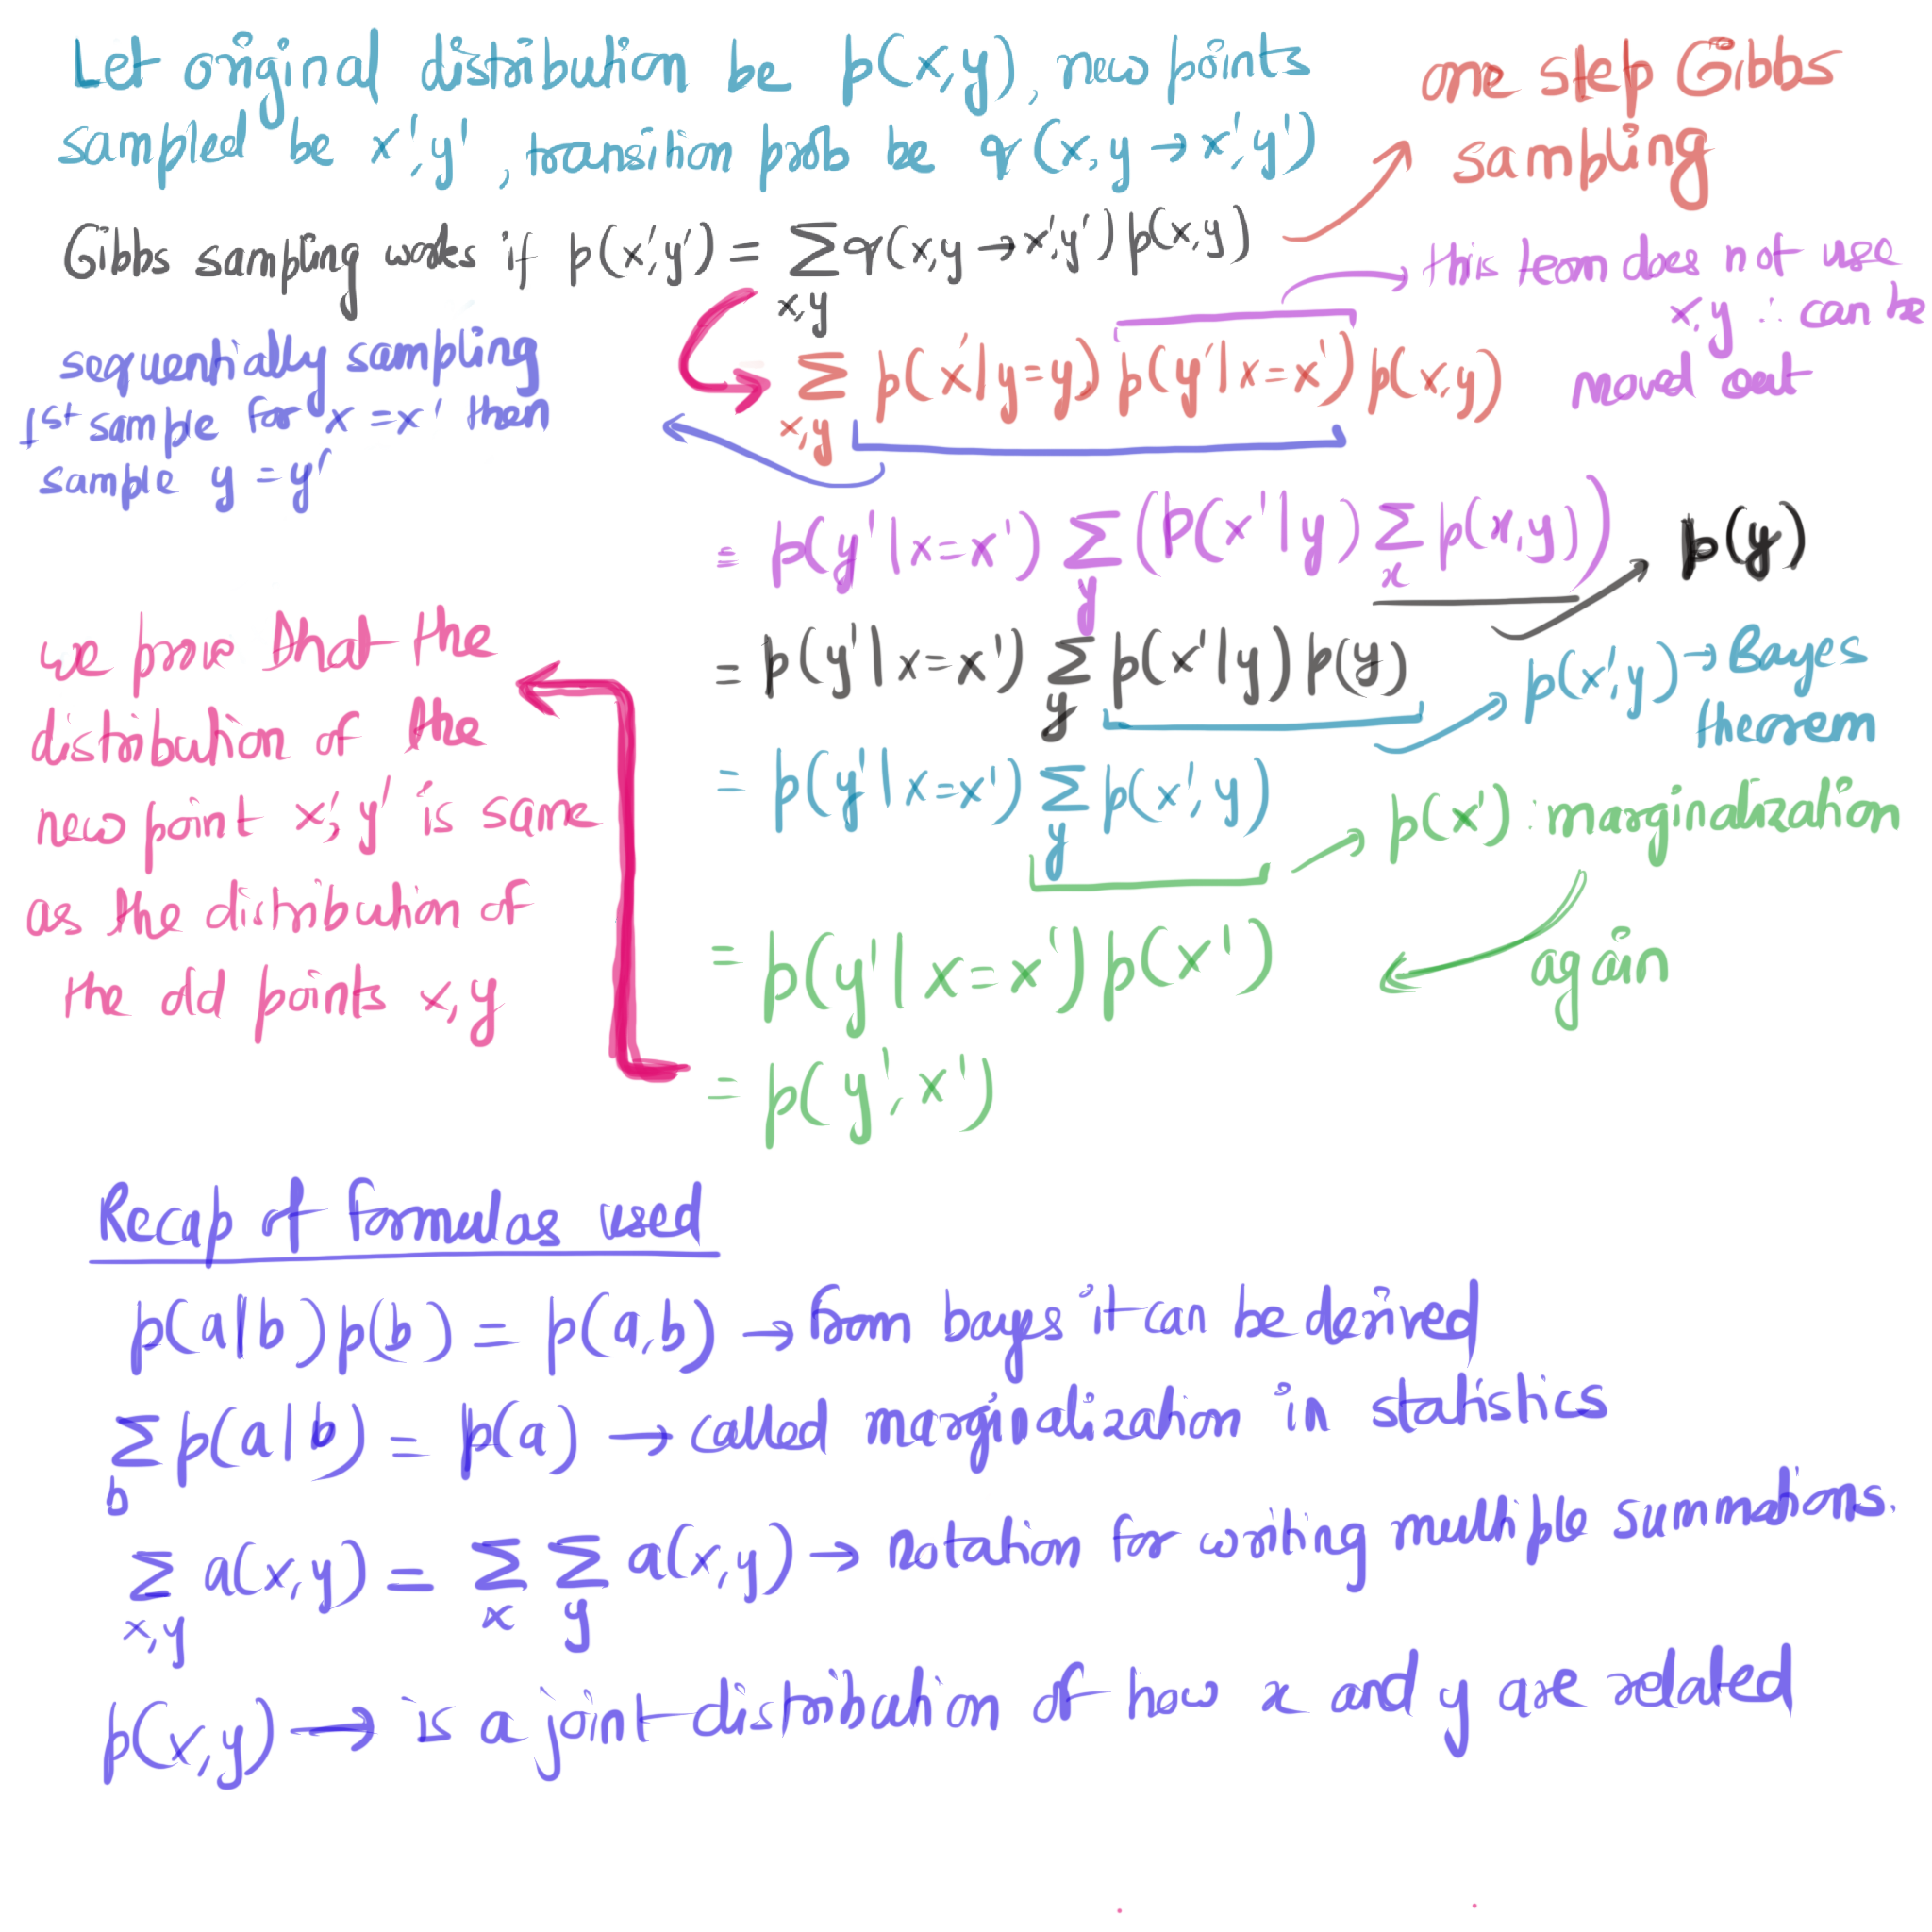 Let original distribution be p(x,y), new points
sampled be x',y' , transition prob be q(x,y→x',y')
one step Gibbs
sampling
Gibbs sampling works if p(x',y') = Σ q(x,y→x',y') p(x,y)
x,y
this term does not use
x,y ∴ can be
moved out
sequentially sampling
1st sample for x = x' then
sample y = y'
Σ p(x'|y=y) p(y'|x=x') p(x,y)
x,y
= p(y'|x=x') Σ (p(x'|y) Σ p(x,y))
y x
p(y)
= p(y'|x=x') Σ p(x'|y) p(y)
y
p(x',y) → Bayes
theorem
= p(y'|x=x') Σ p(x',y)
y
p(x') : marginalization
again
= p(y'|x=x') p(x')
= p(y',x')
we prove that the
distribution of the
new point x',y' is same
as the distribution of
the old points x,y
Recap of formulas used
p(a|b) p(b) = p(a,b) → from bayes it can be derived
Σ p(a|b) = p(a) → called marginalization in statistics
b
Σ a(x,y) = Σ Σ a(x,y) → Notation for writing multiple summations.
x,y x y
p(x,y) → is a joint distribution of how x and y are related